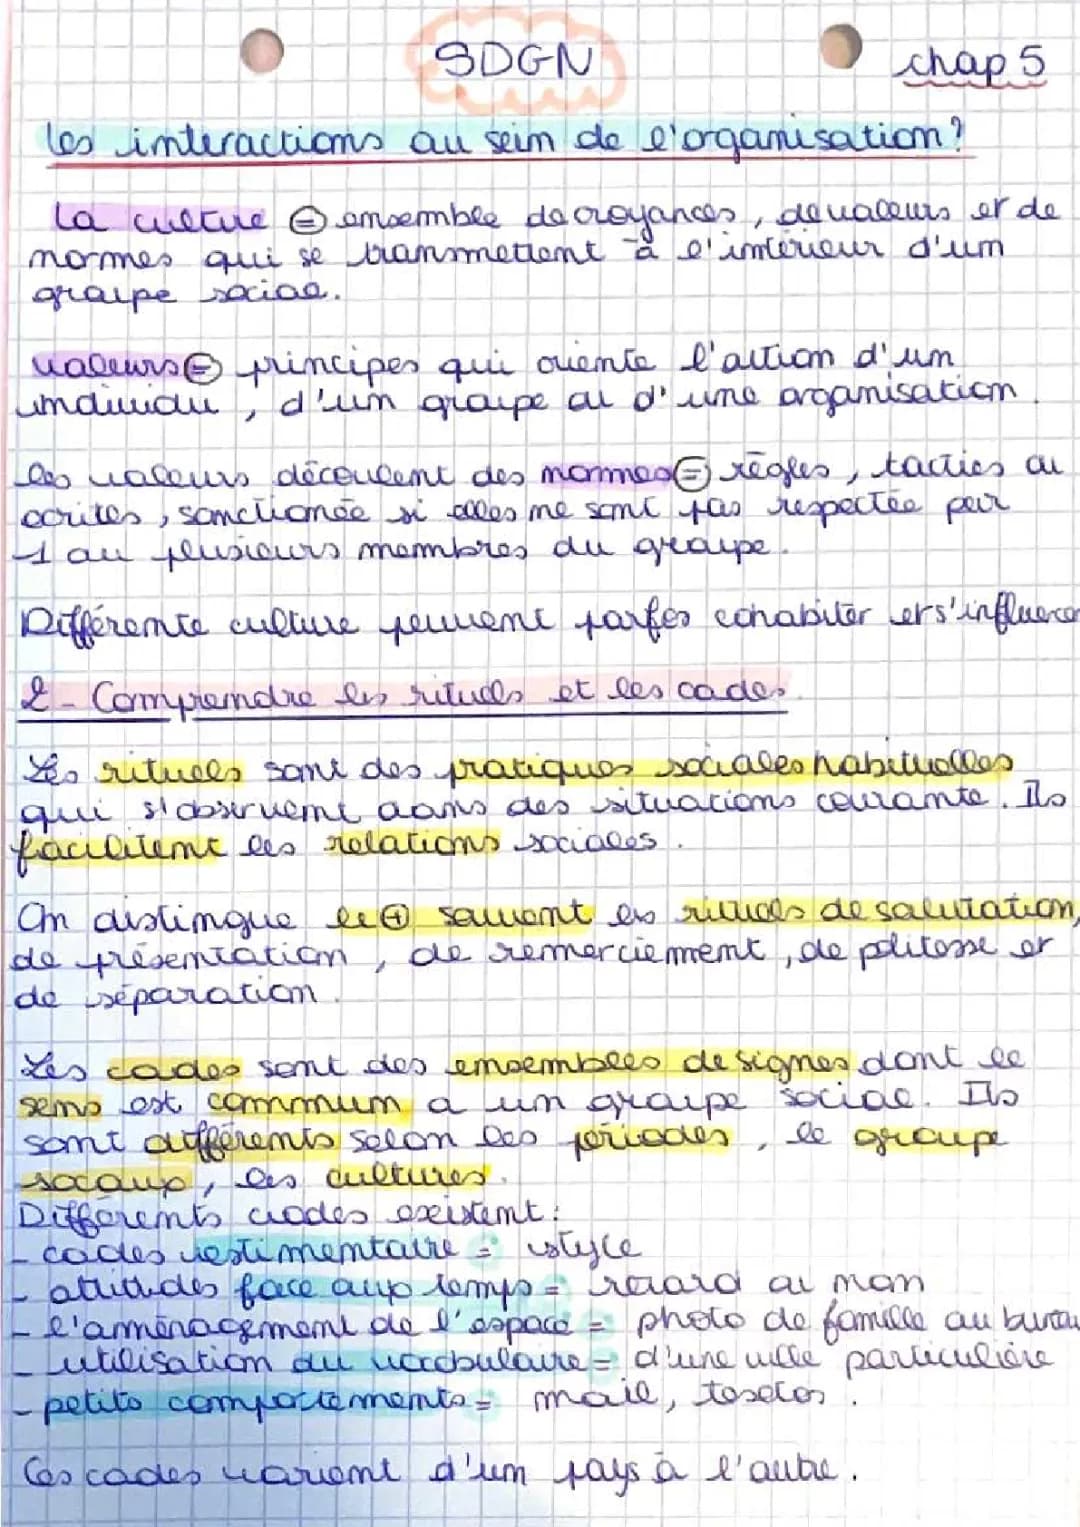 SDGN
chap 5
les interactions au sein de l'organisation?
la culture = ensemble de croyances, de valeurs et de
normes qui se transmettent à l'intérieur d'un
groupe social.
valeurs = principes qui oriente l'action d'un
individu, d'un groupe ou d'une organisation.
les valeurs découlent des normes = règles, tacties ou
écrites, sanctionnée si elles ne sont pas respectée par
1 ou plusieurs membres du groupe.
Différente culture peuvent parfos cohabiter et s'influencer
2 - Comprendre les rituels et les codes.
Les rituels sont des pratiques sociales habituelles
qui s'observent dans des situations courante. Ils
facilitent les relations sociales.
On distingue le + souvent les rituels de salutation,
de présentation, de remerciement, de politesse et
de séparation.
Les codes sont des ensembles de signes dont le
sens est commun a un groupe social. Ils
sont différents selon les périodes, le groupe
sociaux, les cultures.
Différents codes existent :
- codes vestimentaire = style
- attitudes face aux temps = retard ou non
- l'aménagement de l'espace = photo de famille au bureau
- utilisation du vocabulaire = d'une ville particulière
- petits comportements = mail, textos.
Ces codes varient d'un pays à l'autre.